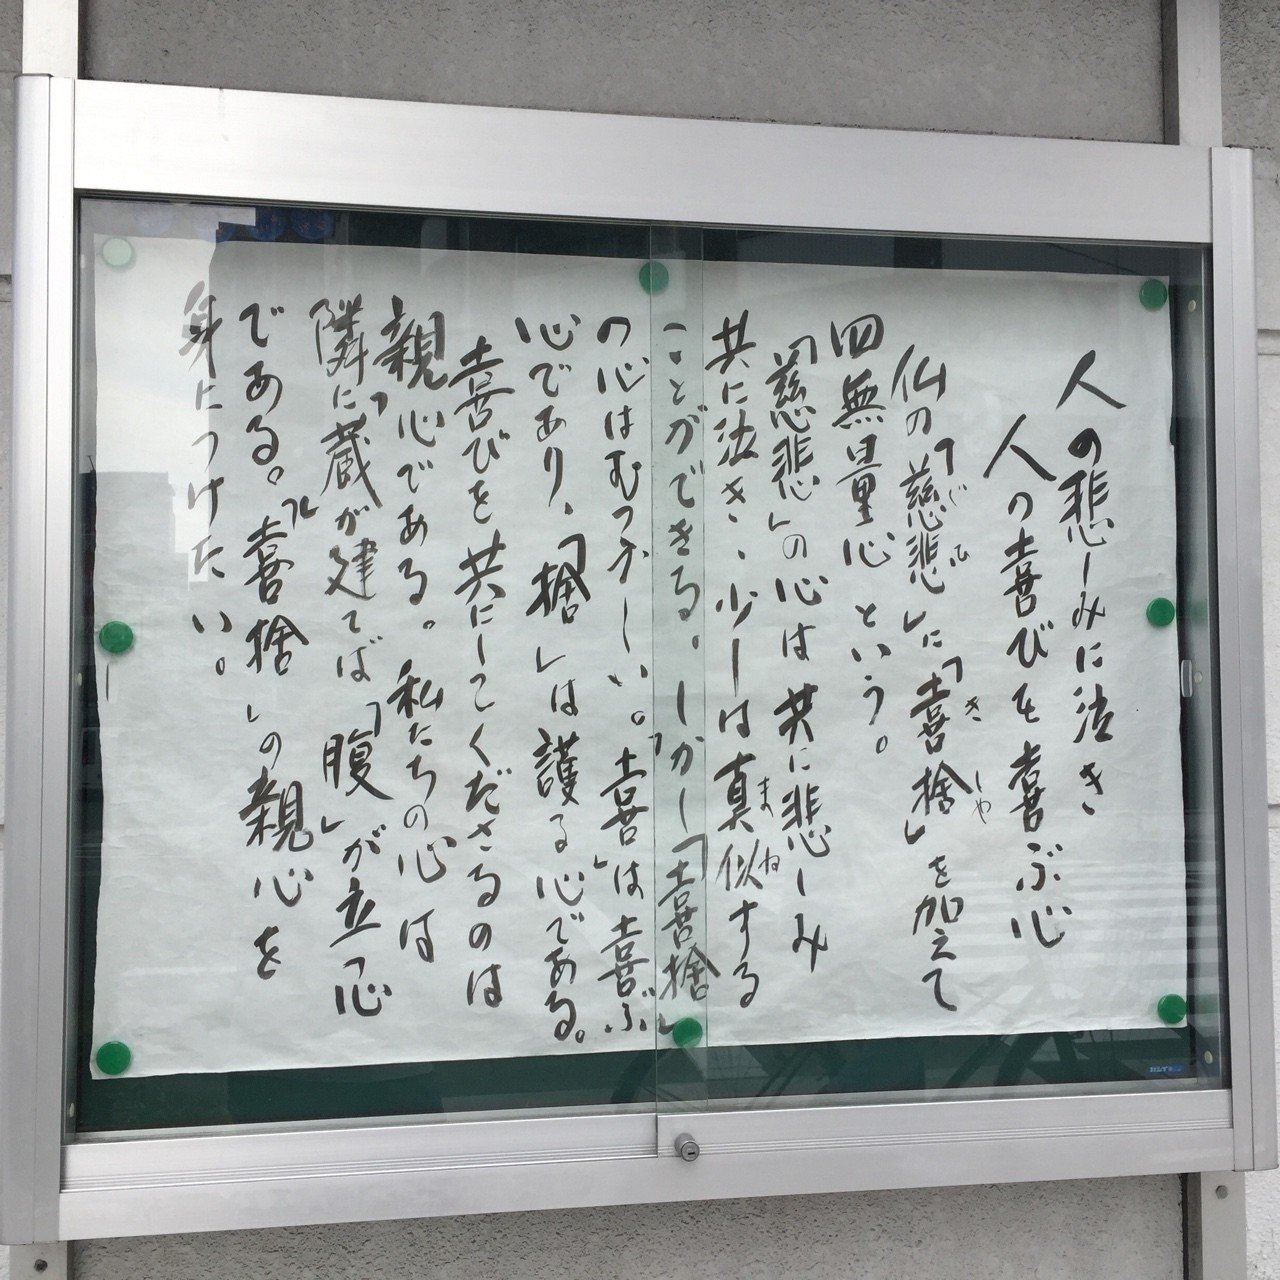 人の悲しみに泣き
人の喜びを喜ぶ心
仏の「慈悲」に「喜捨」を加えて
じひ
きしゃ
四無量心という。
「慈悲」の心は共に悲しみ
共に泣き、少しは真似する
まね
ことができる。しかし「喜捨」
の心はむつかしい。「喜」は喜ぶ
心であり、「捨」は護る心である。
喜びを共にしてくださるのは
親心である。私たちの心は
隣に「蔵」が建てば「腹」が立つ心
である。"喜捨"の親心を
身につけたい。